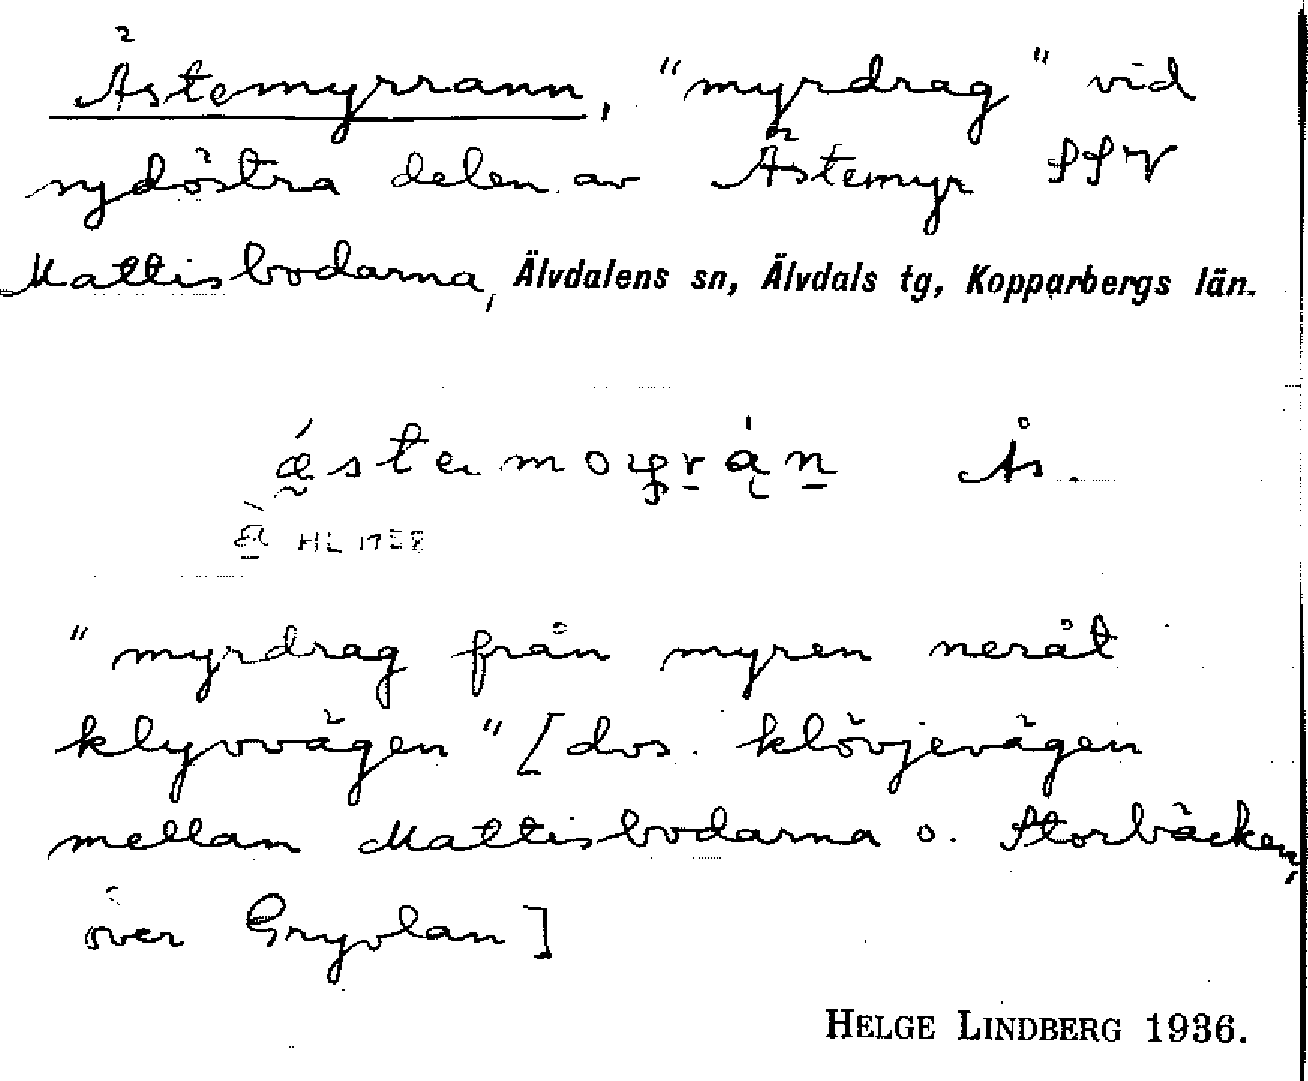 Ästemyrrann, "myrdrag" vid
sydöstra delen av Ästemyr SSV
Mattisbodarna, Älvdalens sn, Älvdals tg, Kopparbergs län.
Ås.
HL 1758
"myrdrag från myren neråt
klyvvägen" [dvs. klövjevägen
mellan Mattisbodarna o. Storbäcken,
över Gryvlan]
HELGE LINDBERG 1936.